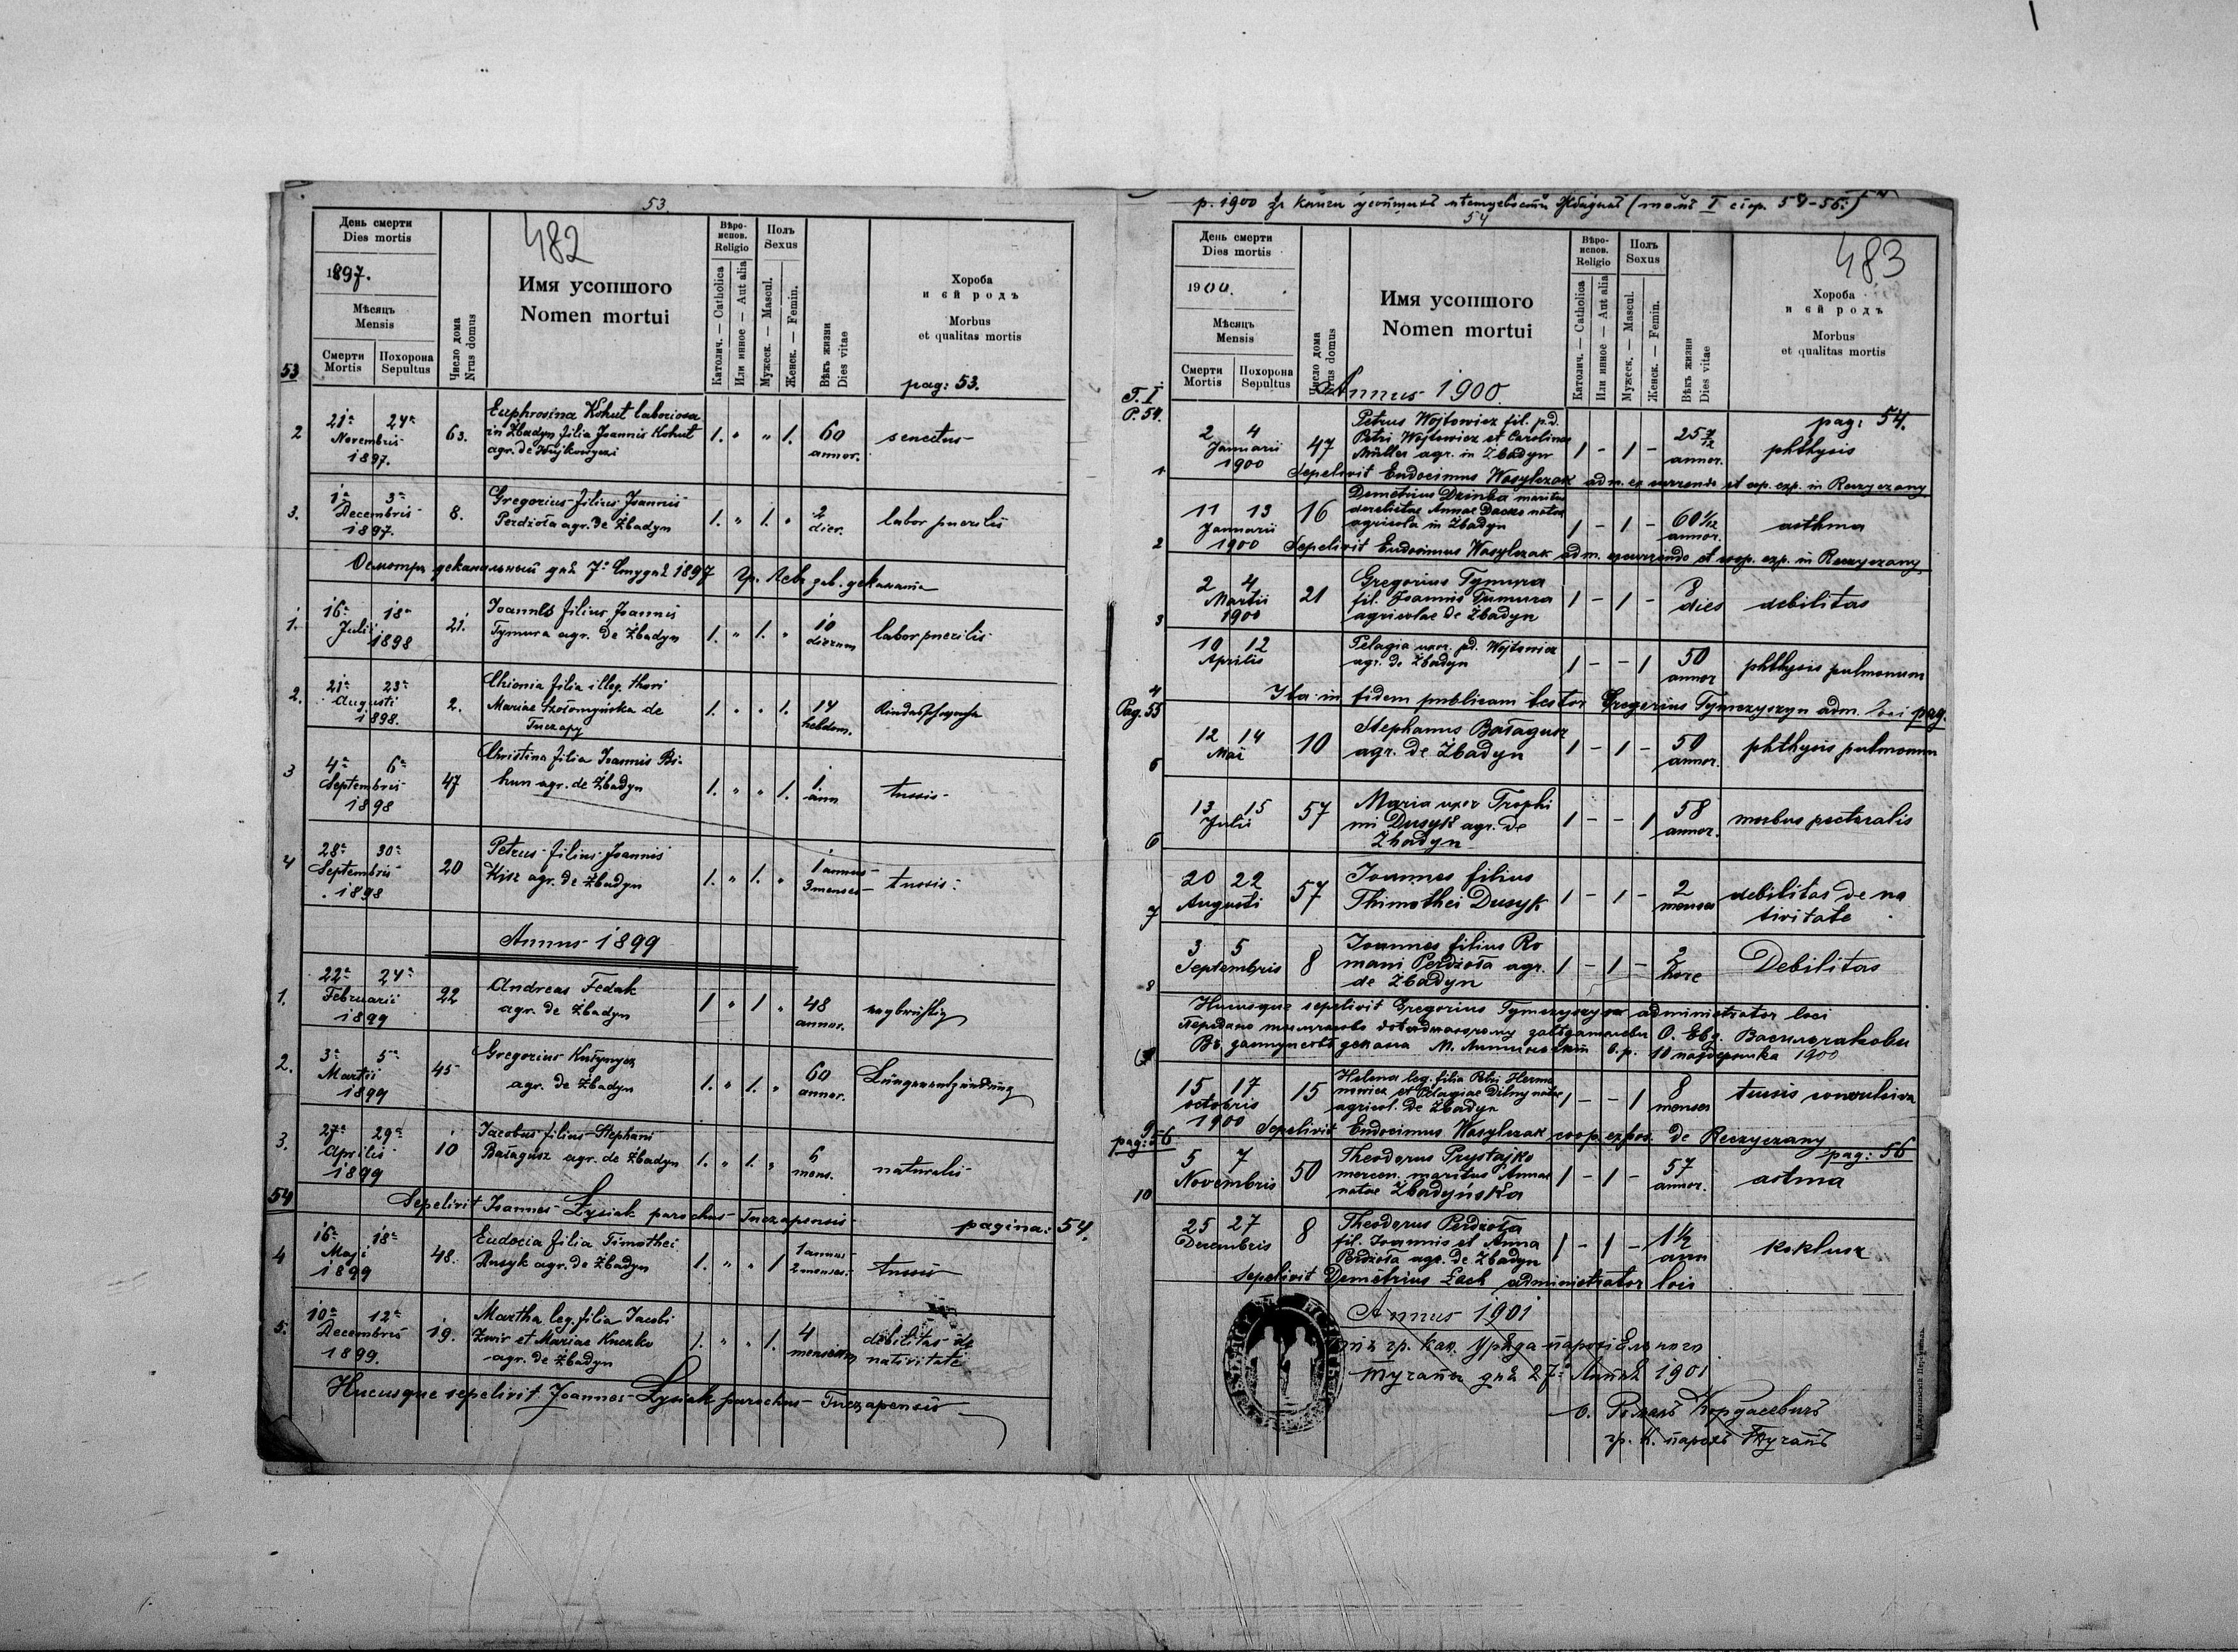 53.
482
День смерти
Dies mortis
1897.
Мѣсяць
Mensis
Смерти
Mortis
Похорона
Sepultus
Число дома
Nrus domus
Имя усопшого
Nomen mortui
Вѣро-
испов.
Religio
Католич. — Catholica
Или инное — Aut alia
Полъ
Sexus
Мужеск. — Mascul.
Женск. — Femin.
Вѣкъ жизни
Dies vitae
Хороба
и єй родъ
Morbus
et qualitas mortis
53
pag: 53.
2 21a 24a Novembris 1897. 63. Euphrosina Kohut laboriosa
in Żbadyn filia Joannis Kohut
agr. de 1. " " 1. 60 annor. senectus
3. 1a 3a Decembris 1897. 8. Gregorius filius Joannis
Perdżoła agr. de Żbadyn 1. " 1. " 2 dier. labor puerilis
деканальный дня 7 Студня 1897
1. 16a 18a Julii 1898 21. Joannes filius Joannis
Tymura agr. de Żbadyn 1. " 1. " 10 dierum labor puerilis
2. 21a 23a Augusti 1898. 2. Chionia filia illeg. thori
Mariae de
Tuczapy 1. " " 1. 14 hebdom.
3 4a 6a Septembris 1898 47 Christina filia Joannis Bi-
hun agr. de Żbadyn 1. " " 1. 1 ann tussis
4 28a 30a Septembris 1898 20 Petrus filius Joannis
Kisz agr. de Żbadyn 1. " 1. " 1 annus 3 menses tussis
Annus 1899
1. 22a 24a Februarii 1899 22 Andreas Fedak
agr. de Żbadyn 1 " 1 " 48 annor.
2. 3a 5a Martii 1899 45 Gregorius
agr. de Żbadyn 1. " 1. " 60 annor. Lungenentzündung
3. 27a 29a Aprilis 1899 10 Jacobus filius Stephani
Bałagusz agr. de Żbadyn 1. " 1. " 6 mens. naturalis
54 Sepelivit Joannes Łysiak parochus Tuczapensis pagina: 54.
4 16a 18a Maji 1899 48. Eudocia filia Timothei
Dusyk agr. de Żbadyn 1. " " 1 1 annus 2 menses. tussis
5. 10a 12a Decembris 1899. 19. Martha leg. filia Jacobi
Żwir et Mariae Kuczko
agr. de Żbadyn 1. " " 1. 4 mensium debilitas de
nativitate
Hucusque sepelivit Joannes Łysiak parochus Tuczapensis
р. 1900 (томъ I стор. 54-56.)
54
483
День смерти
Dies mortis
1900.
Мѣсяць
Mensis
Смерти
Mortis
Похорона
Sepultus
Число дома
Nrus domus
Имя усопшого
Nomen mortui
Вѣро-
испов.
Religio
Католич. — Catholica
Или инное — Aut alia
Полъ
Sexus
Мужеск. — Mascul.
Женск. — Femin.
Вѣкъ жизни
Dies vitae
Хороба
и єй родъ
Morbus
et qualitas mortis
Annus 1900.
T. I
P. 54.
pag: 54.
1 2 4 Januarii 1900 47 Petrus Wojtowicz fil. p.d.
Petri Wojtowicz et Carolinae
Müller agr. in Żbadyn 1 - 1 - 25 7/12 annor. phthysis
Sepelivit Eudocimus Wasylczak adm. excurrendo et cop. exp. in Reczyczany
2 11 13 Januarii 1900 16 Demetrius Dzinba maritus
derelictae Annae Dacko natae
agricola in Żbadyn 1 - 1 - 60 1/12 annor. asthma
Sepelivit Eudocimus Wasylczak adm. excurrendo et coop. exp. in Reczyczany
3 2 4 Martii 1900 21 Gregorius Tymura
fil. Joannis Tumura
agricolae de Żbadyn 1 - 1 - 8 dies debilitas
4 10 12 Aprilis Pelagia uxor. pd. Wojtowicz
agr. de Żbadyn 1 - - 1 50 annor phthysis pulmonum
Ita in fidem publicam testor Gregorius Tymczyszyn adm. loci pag.
Pag. 55
5 12 14 Maii 10 Stephanus Bałagusz
agr. de Żbadyn 1 - 1 - 50 annor. phthysis pulmonum
6 13 15 Julii 57 Maria uxor Trophi
mi Dusyk agr. de
Żbadyn 1 - - 1 58 annor. morbus pectoralis
7 20 22 Augusti 57 Joannes filius
Thimothei Dusyk 1 - 1 - 2 menses debilitas de na
tivitate
8 3 5 Septembris 8 Joannes filius Ro
mani Perdżoła agr.
de Żbadyn 1 - 1 - 2 hore Debilitas
Hucusque sepelivit Gregorius Tymczyszyn administrator loci
О. Евд. Васильчакови
10 1900
9 15 17 octobris 1900 15 Helena leg. filia Petri Herma
nowicz et Pelagiae Dilny natae
agricol. de Żbadyn 1 - - 1 8 menses tussis convulsiva
Sepelivit Eudocimus Wasylczak coop. expos. de Reczyczany
pag: 56
pag: 56
10 5 7 Novembris 50 Theodorus Prystajko
mercen. maritus Annae
natae Żbadyńska 1 - 1 - 57 annor. astma
25 27 Decembris 8 Theodorus Perdżoła
fil. Joannis et Anna
Perdżoła agr. de Żbadyn 1 - 1 - 1 1/2 ann koklusz
sepelivit Demetrius Łach administrator loci
Annus 1901
гр. кат. Уряда парохіяльного
Тучапы дня 27 1901
о. Романъ
гр. к. парохъ Тучапъ